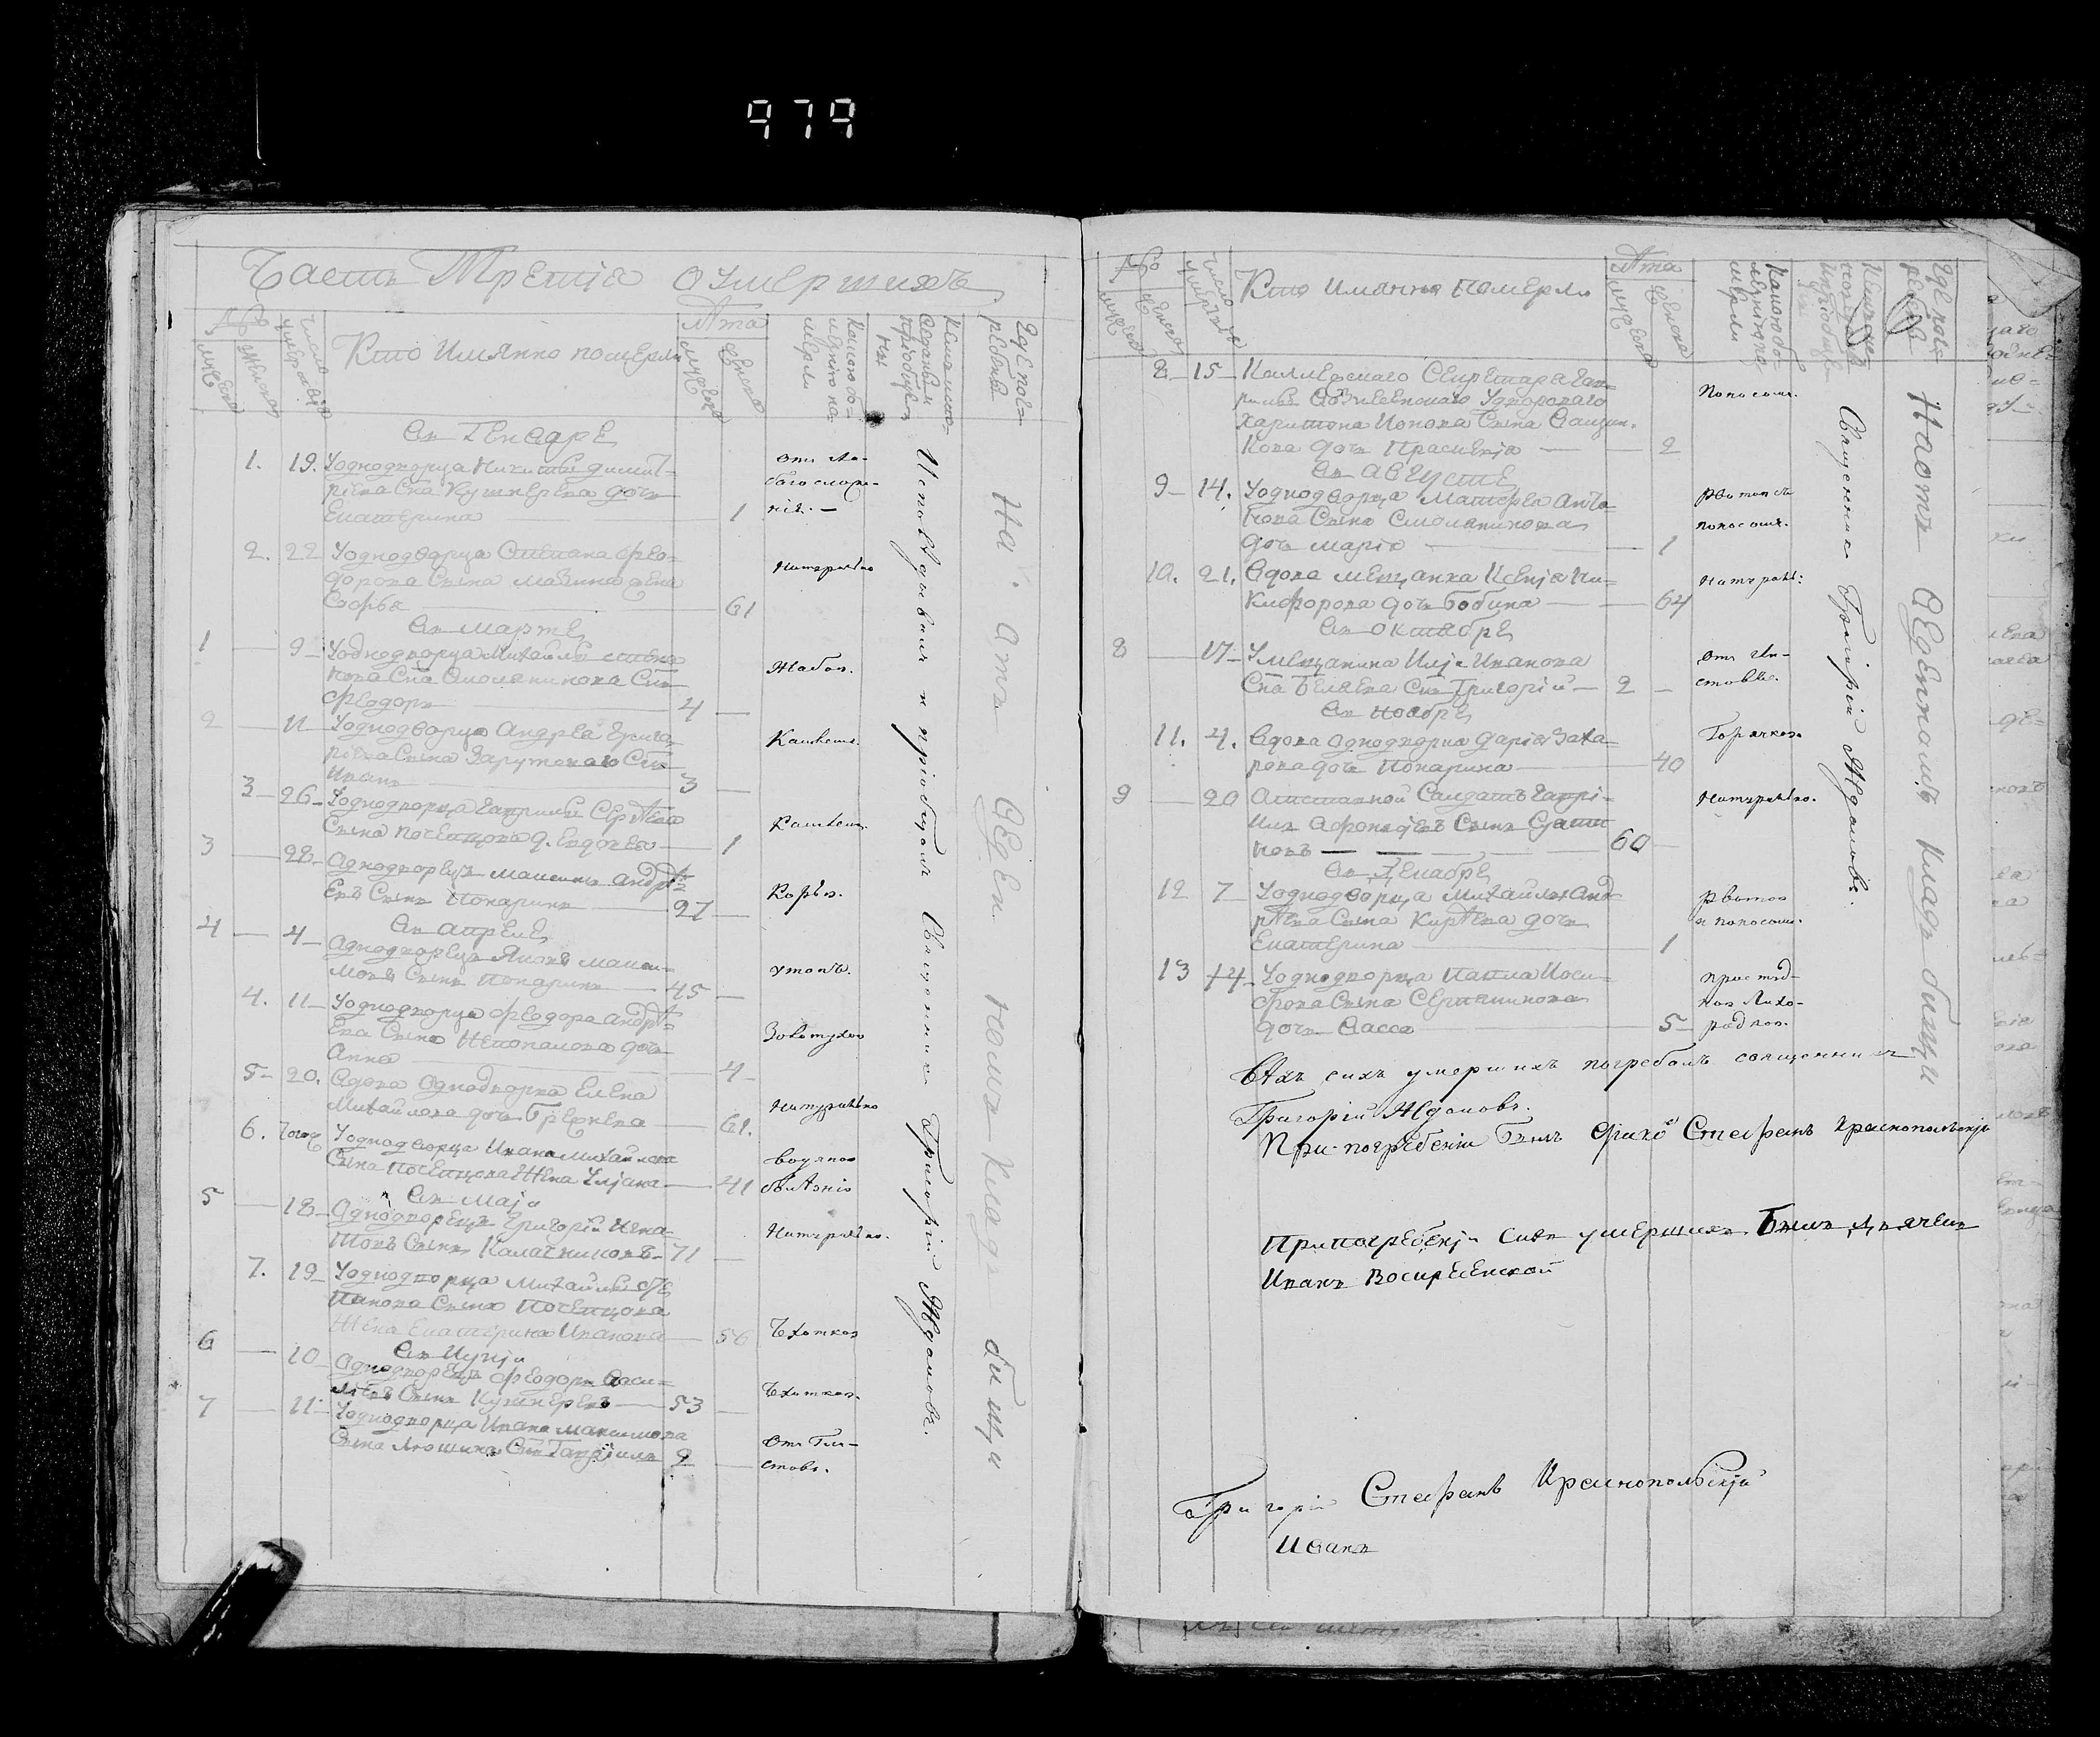 979
Часть Третіа о умершихъ
№
мужеска
женска
число умертвія
Кто имянно померли
Лѣта
мужеска
женска
Какою болѣзнію померли
Кемъ исповѣданы и пріобщены
Где погребены
Въ Генварѣ
1. 19. У однодворца Никиты Димит-
ріева Сна Кушнерева дочь
Екатерина 1
отъ сла-
баго сложе-
нія.
2. 22 У однодворца Стефана Фео-
дорова Сына жена
Софья 61
Натурально
Въ Мартѣ
1 9 У однодворца Михайлы
Сна Смолянинова Снъ
Феодоръ 4
Жабою.
2 11 У однодворца Андрея Григо-
рьева Сына Зарутскаго Снъ
Иванъ 3
Кашлемъ.
3 26 У однодворца Гавриилы Сергѣева
Сына Почепцова д. Евдокея 1
Кашлемъ.
3 22 Однодворецъ Максимъ Андрѣ-
евъ Сынъ Понаринъ 27
Корью.
Въ Апрелѣ
4 4 Однодворецъ Яковъ Макси-
мовъ Сынъ Понаринъ 45
утопъ.
4. 11 У однодворца Феодора Андрѣ-
ева Сына дочь
Анна 4
Золотухою
5 20. Вдова Однодворка Елена
Михайлова дочь 61.
Натурально
6. У однодворца Ивана Михайлова
Сына Почепцова Жена Уліана 41
водяною
болѣзнію
Въ Маіи
5 18 Однодворецъ Григорій Игна-
товъ Сынъ Калашниковъ 71
Натурально.
7. 19 У однодворца Михайлы Сте-
панова Сына Почепцова
Жена Екатерина Иванова 56
Чахоткою
Въ Иуніи
6 10 Однодворецъ Феодоръ Васи-
льевъ Сынъ Кушнеревъ 53
Чахоткою.
7 11 У однодворца Ивана Максимова
Сына Снъ Гавріилъ 2
отъ Гли-
стовъ.
Исповѣдывалъ и пріобщалъ Священникъ Григорій Ждановъ.
На отъ веден номъ Кладъ бищи
№
мужеска
женска
число умертвія
Кто имянно померли
Лѣта
мужеска
женска
Какою болѣзнію померли
Где погребены
8 15 Коллежскаго Секретаря Гав-
рилы
Харитона Ионова Сына
дочь Праскевія 2
поносомъ.
Въ Августѣ
9 14. У однодворца Матфея Анто-
нова Сына Смолянинова
дочь Марія 1
рвотою съ
поносомъ.
10. 21. Вдова мещанка Ксенія Ни-
кифорова дочь Бобина 64
Натурально:
Въ Октябрѣ
8 17 У мещанина Иліи Иванова
Сна Беляева Снъ Григорій 2
отъ Гли-
стовъ.
Въ Ноябрѣ
11. 4. Вдова однодворка Дарія Заха-
рова дочь Понарина 40
Горячкою
9 20 Отставной Салдатъ Гаврі-
илъ Афонасіевъ Сынъ
60
Натурально.
Въ Декабрѣ
12 7 У однодворца Михайлы Анд-
рѣева Сына Кирѣева дочь
Екатерина 1
рвотою
и поносомъ.
13 14 У однодворца Павла Иоси-
фова Сына дочь Васса 5
простуд-
ною Лихо-
радкою.
Священникъ Григорій Ждановъ.
На отъ веденномъ кладъ бищи
Всѣхъ сихъ умершихъ погребалъ священникъ
Григорій Ждановъ.
При погребеніи былъ Стефанъ Краснопольскій
При погребеніи сихъ умершихъ Былъ дьячекъ
Иванъ Воскресенской
Григорій Стефанъ Краснопольскій
Иванъ